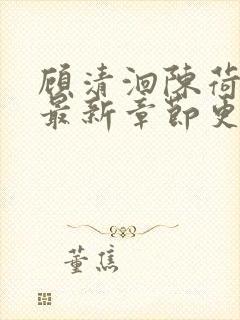 顾清洄陈荷
最新章节更
董焦